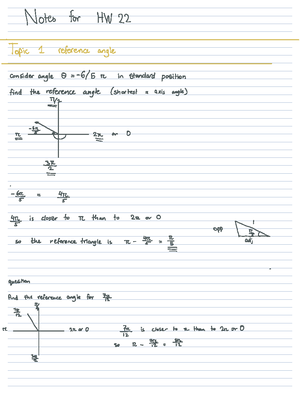 Notes for HW 22
Topic 1 reference angle
Consider angle θ = -6/5 π in standard position
find the reference angle (shortest α axis angle)
π/2
-6π/5
π
2π or 0
3π/2
-6π/5 = 4π/5
4π/5 is closer to π than to 2π or 0
so the reference triangle is π - 4π/5 = π/5
opp
1
π/5
adj
question
find the reference angle for 7π/12
π/2
7π/12
π
2π or 0
3π/2
7π/12 is closer to π than to 2π or 0
so π - 7π/12 = 5π/12